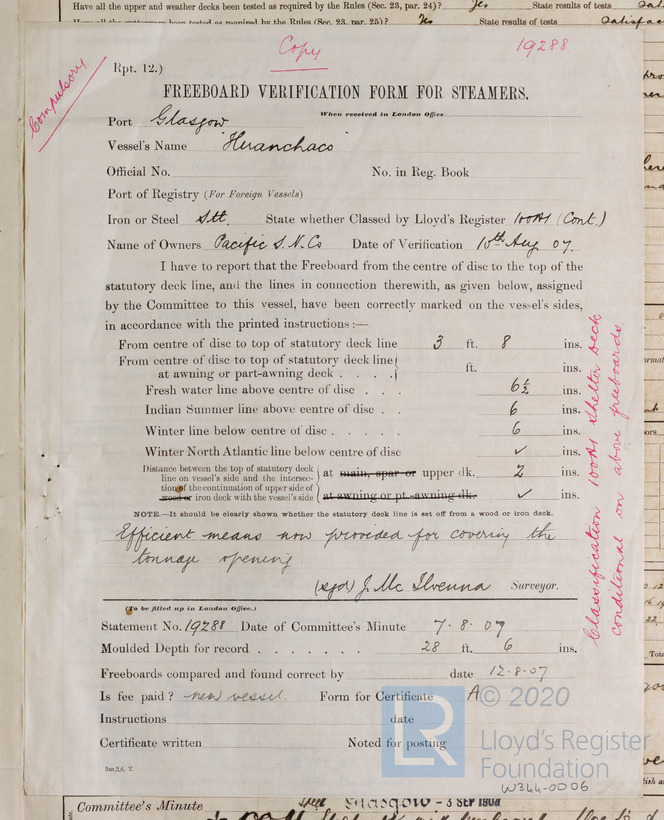 Have all the upper and weather decks been tested as required by the Rules (Sec. 23, par. 24)? Yes State results of tests
been tested as required by the Rules (Sec. 23, par. 25)? Yes State results of tests
Copy
19288
Compulsory
Rpt. 12.)
FREEBOARD VERIFICATION FORM FOR STEAMERS.
When received in London Office
Port Glasgow
Vessel's Name "Huanchaco"
Official No. No. in Reg. Book
Port of Registry (For Foreign Vessels)
Iron or Steel Stl. State whether Classed by Lloyd's Register 100A1 (Cont.)
Name of Owners Pacific S.N.Co Date of Verification 10th Aug 07.
I have to report that the Freeboard from the centre of disc to the top of the
statutory deck line, and the lines in connection therewith, as given below, assigned
by the Committee to this vessel, have been correctly marked on the vessel's sides,
in accordance with the printed instructions :—
From centre of disc to top of statutory deck line 3 ft. 8 ins.
From centre of disc to top of statutory deck line
at awning or part-awning deck . . . . ft. ins.
Fresh water line above centre of disc . . . 6½ ins.
Indian Summer line above centre of disc . . 6 ins.
Winter line below centre of disc . . . . . 6 ins.
Winter North Atlantic line below centre of disc ✓ ins.
Distance between the top of statutory deck
line on vessel's side and the intersec-
tion of the continuation of upper side of
wood or iron deck with the vessel's side
at main, spar or upper dk. 2 ins.
at awning or pt.-awning dk. ✓ ins.
NOTE.—It should be clearly shown whether the statutory deck line is set off from a wood or iron deck.
Efficient means now provided for covering the
tonnage opening
(sgd) J. Mc Ilvenna Surveyor.
Classification 100A1 Shelter Deck
conditional on above freeboards
(To be filled up in London Office.)
Statement No. 19288 Date of Committee's Minute 7-8-07
Moulded Depth for record . . . . . . . 28 ft. 6 ins.
Freeboards compared and found correct by date 12-8-07
Is fee paid? new vessel. Form for Certificate A
Instructions date
Certificate written Noted for posting
© 2020
LR
Lloyd's Register
Foundation
W344-0006
Committee's Minute
Glasgow - 3 SEP 1907